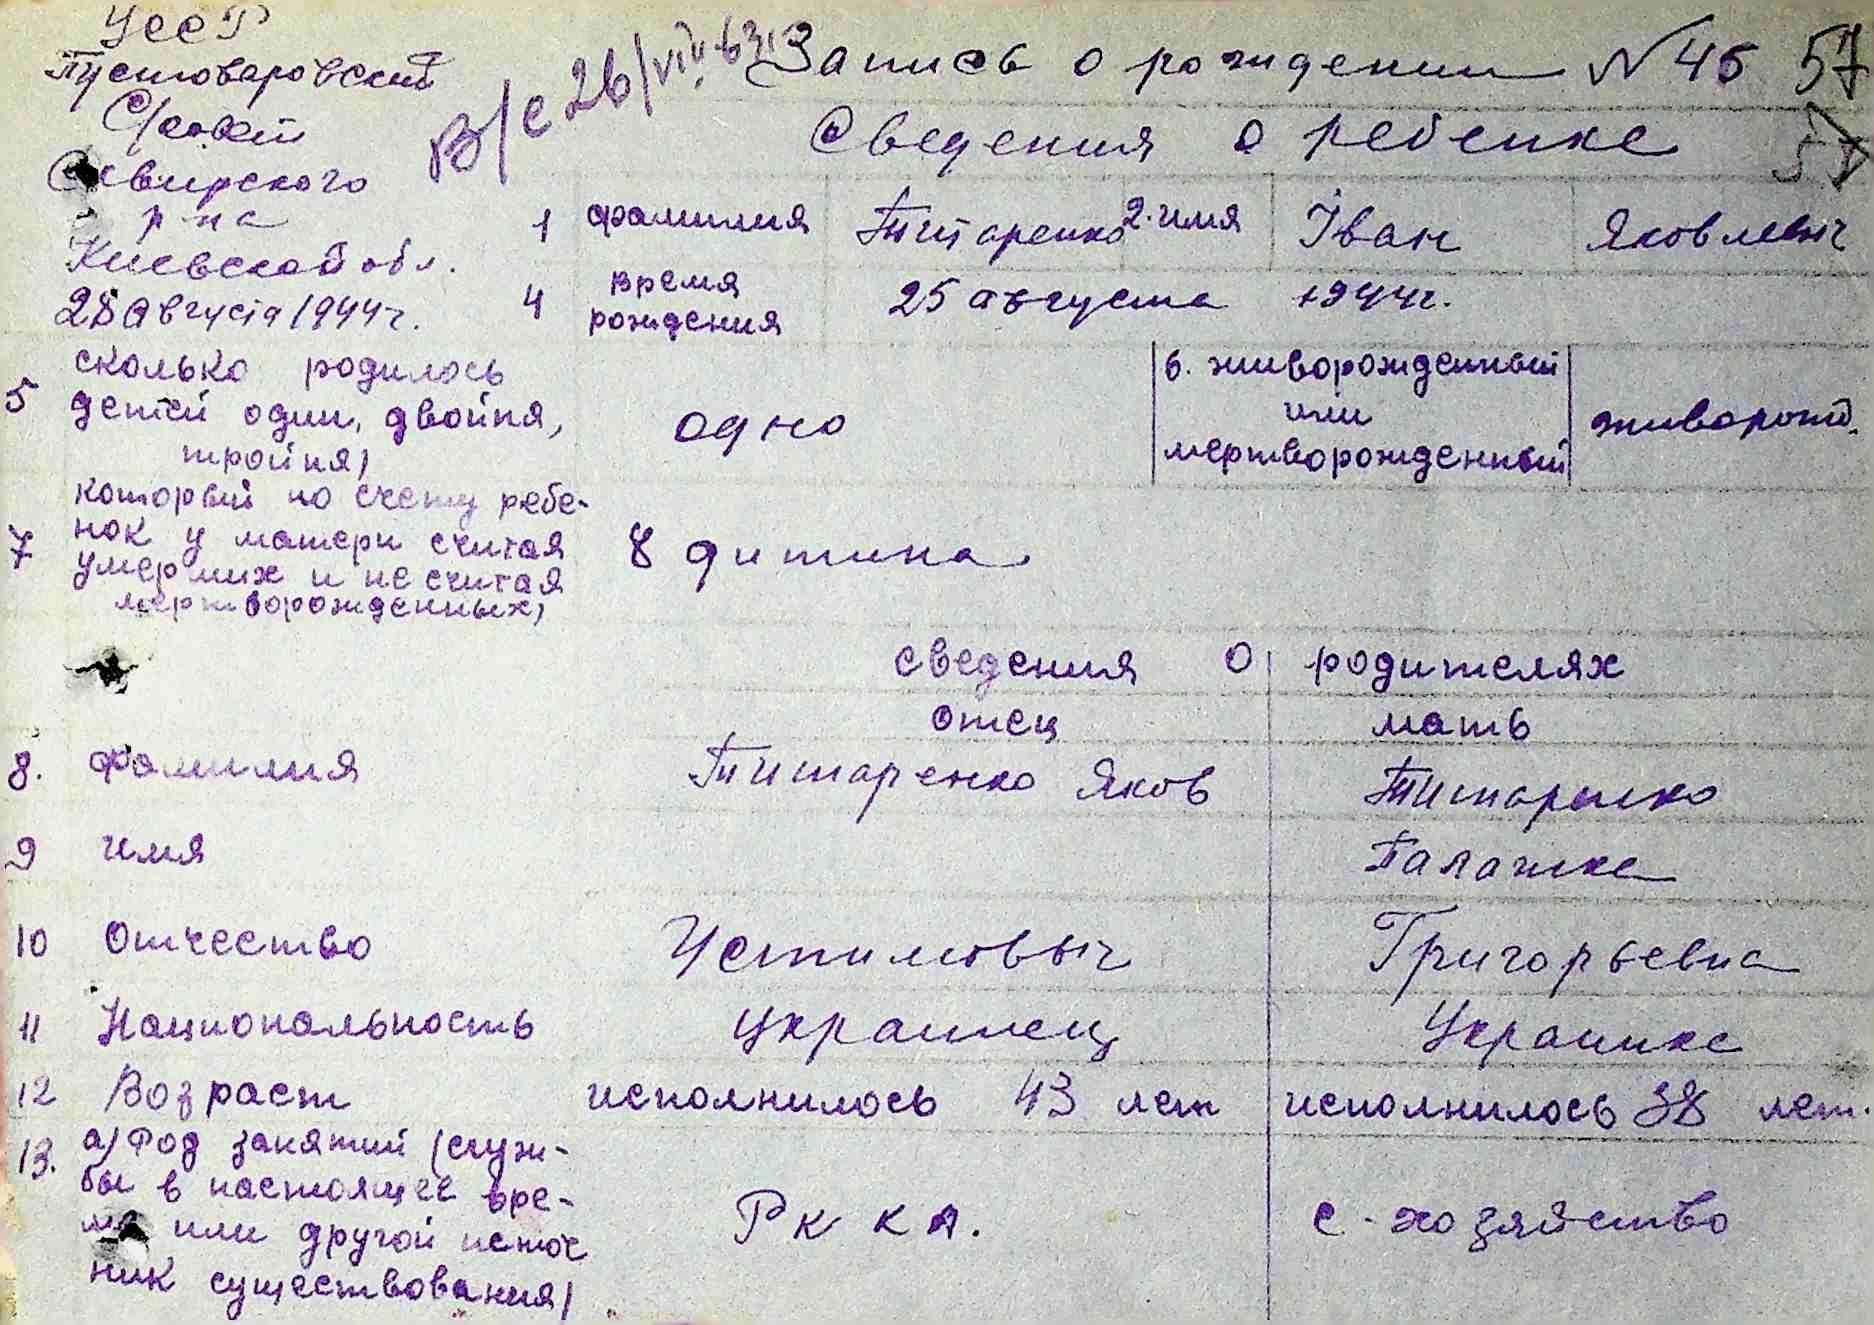 УССР
Пустоваровский
С/совет
Сквирского
р-на
Киевской обл.
28 августа 1944 г.
В/с 26/VIII-63 г.
Запись о рождении № 45 57
Сведения о ребенке 57
1 фамилия Титаренко 2. имя Іван Яковлевыч
4 время рождения 25 августа 1944 г.
5 сколько родилось
детей один, двойня,
тройня)
одно
6. живорожденный
или
мертворожденный
живорожд.
7 который по счету ребе-
нок у матери считая
умерших и не считая
мертворожденных)
8 дитина
сведения о родителях
отец мать
8. фамилия Титаренко Яков Титаренко
9 имя Палажка
10 Отчество Устимовыч Григорьевна
11 Национальность Украинец Украинка
12 Возраст исполнилось 43 лет исполнилось 38 лет.
13. а) Род занятий (служ-
бы в настоящее вре-
мя или другой источ
ник существования)
Р к к а. с-хозяйство